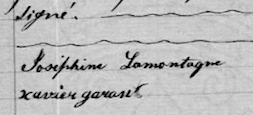 signé.
Joséphine Lamontagne
xavier garant